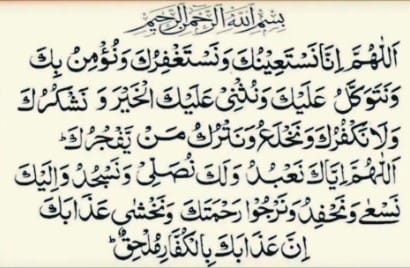 بِسْمِ اللّٰهِ الرَّحْمٰنِ الرَّحِيْمِ
اَللّٰهُمَّ اِنَّا نَسْتَعِيْنُكَ وَنَسْتَغْفِرُكَ وَنُؤْمِنُ بِكَ
وَنَتَوَكَّلُ عَلَيْكَ وَنُثْنِيْ عَلَيْكَ الْخَيْرَ وَ نَشْكُرُكَ
وَلَا نَكْفُرُكَ وَنَخْلَعُ وَنَتْرُكُ مَنْ يَّفْجُرُكَ ط
اَللّٰهُمَّ اِيَّاكَ نَعْبُدُ وَلَكَ نُصَلِّيْ وَنَسْجُدُ وَاِلَيْكَ
نَسْعٰى وَنَحْفِدُ وَنَرْجُوْا رَحْمَتَكَ وَنَخْشٰى عَذَابَكَ
اِنَّ عَذَابَكَ بِالْكُفَّارِ مُلْحِقٌ ط